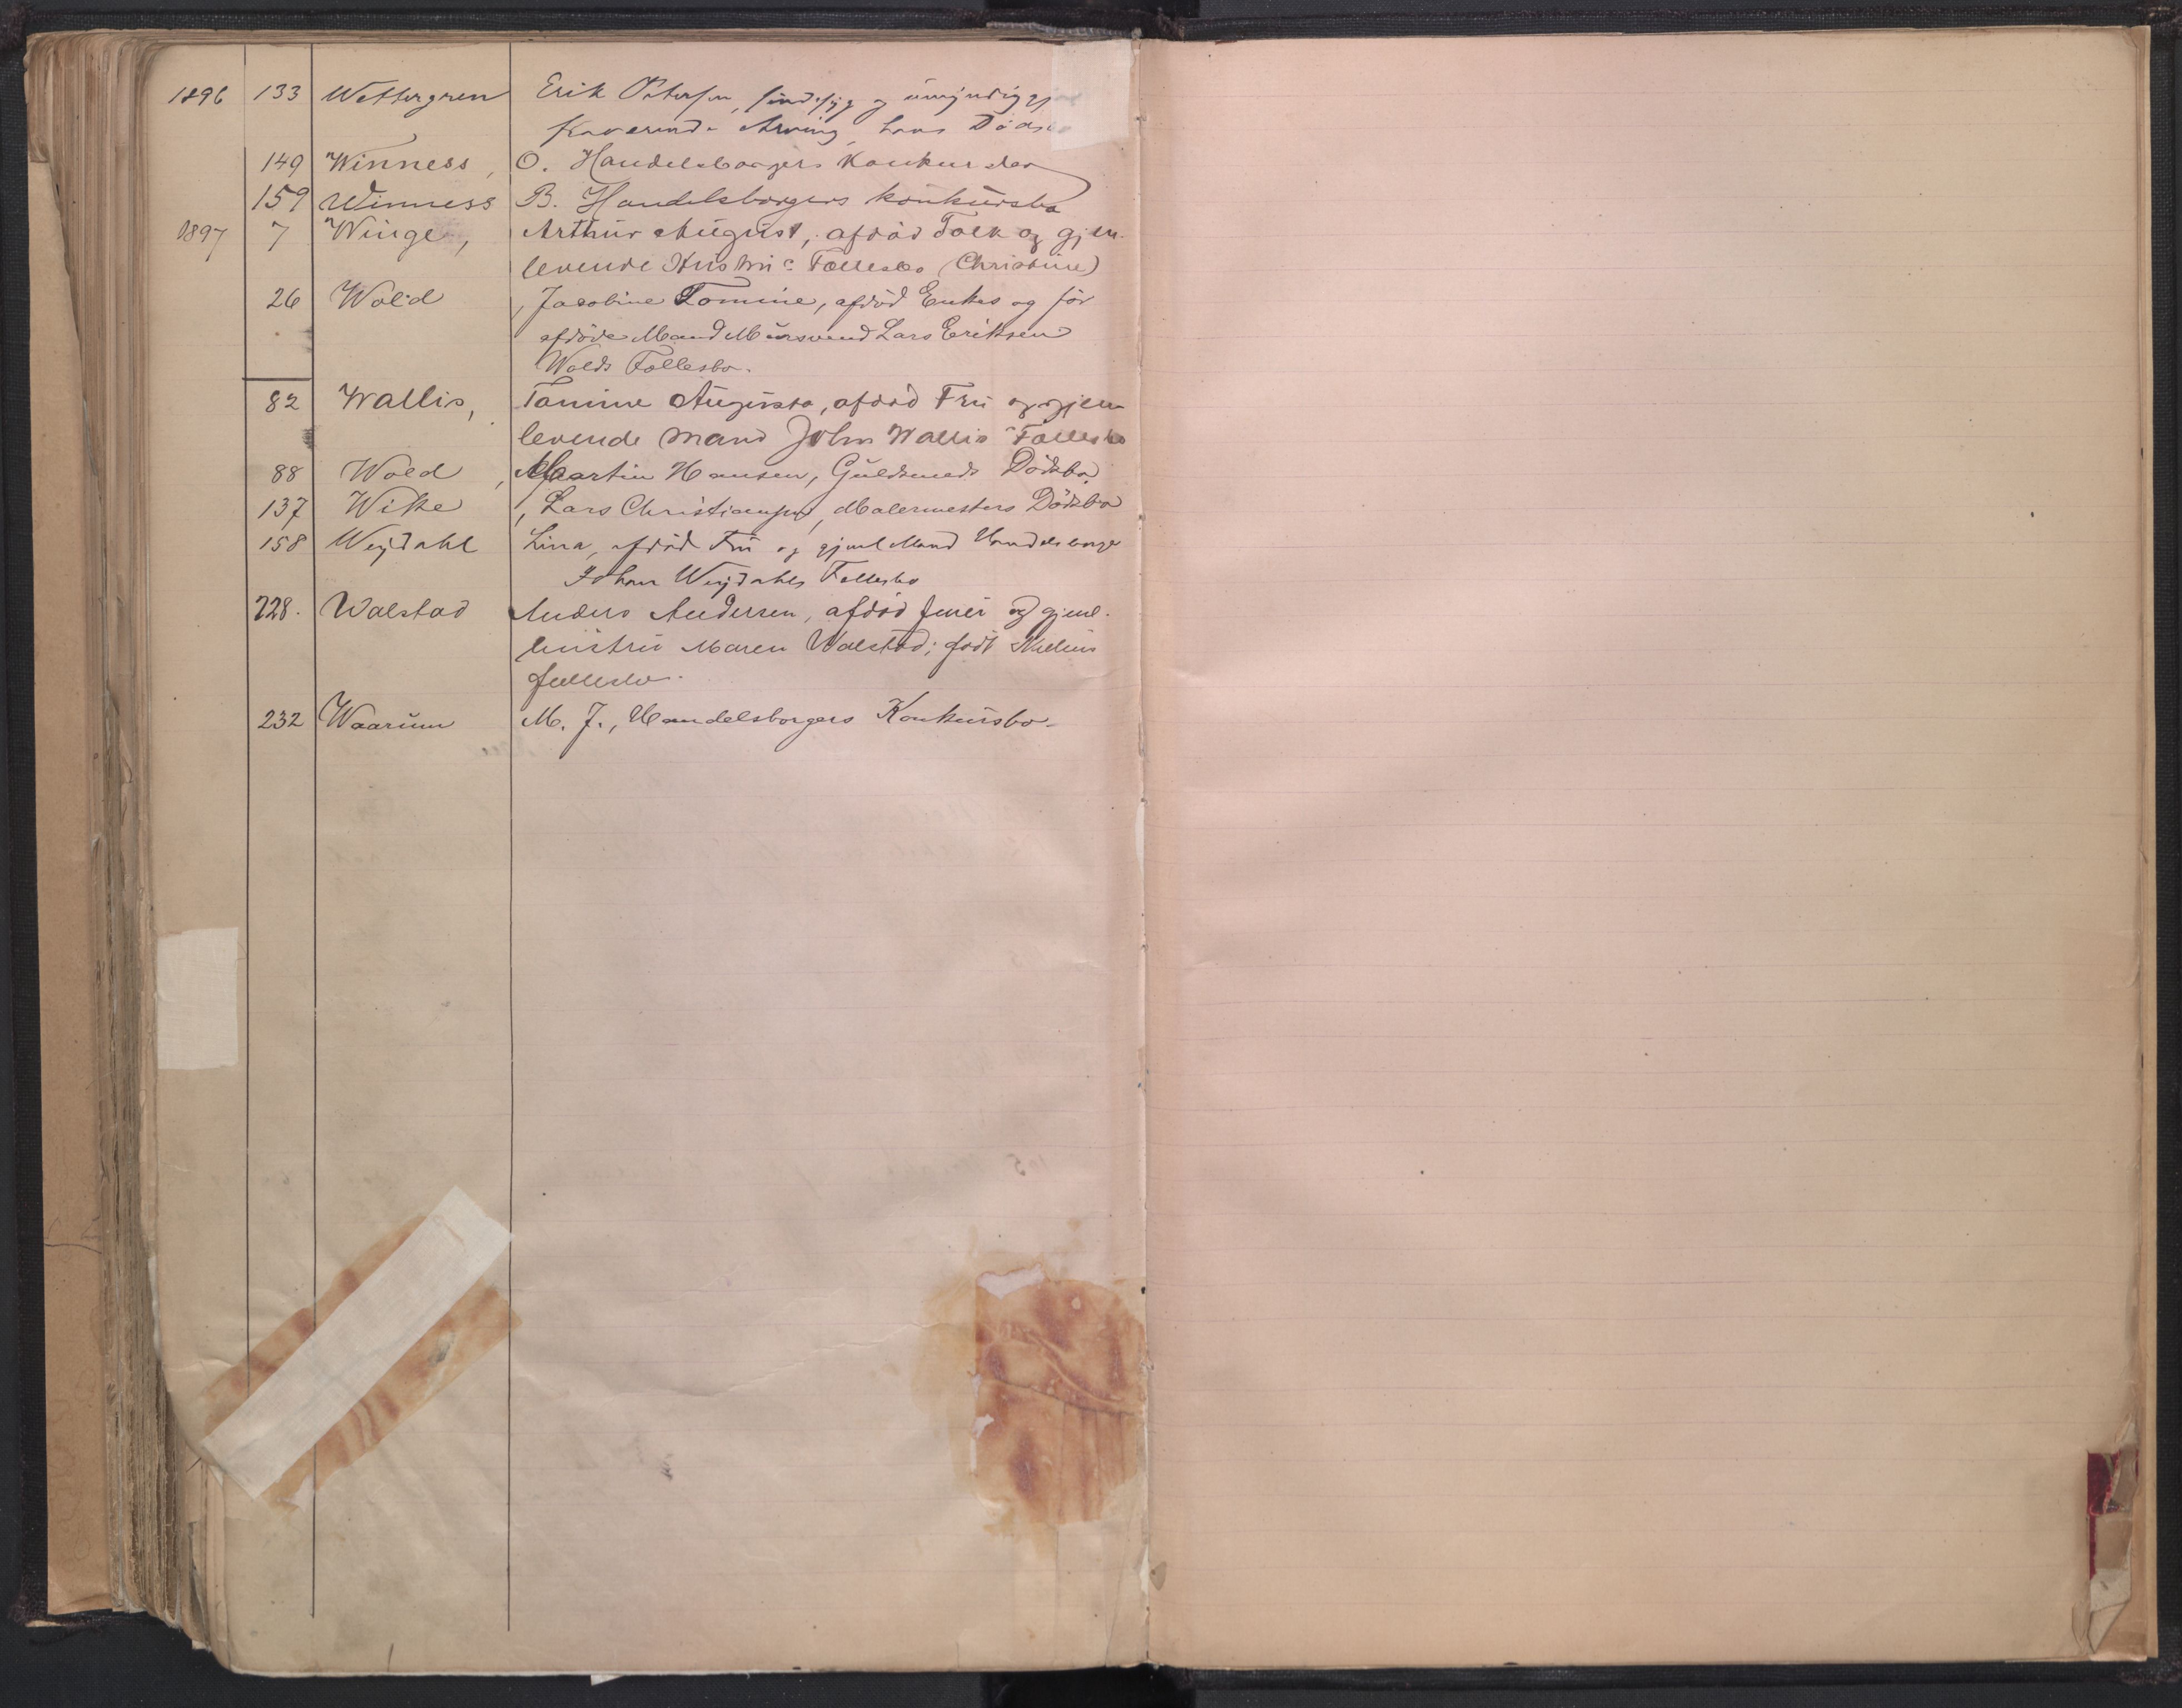 1896 133 Wettergren Erik Petersen, sindssyg og umyndig gj
fraværende Arving, hans Dødsbo
149 Winness, O. Handelsborgers Konkursbo
159 Winness B. Handelsborgers konkursbo
1897 7 Winge, Arthur August, afdød Tolk og gjen-
levende Hustrus Fællesbo (Christine)
26 Wold, Jacobine Tomine, afdød Enkes og før
afdøde Mand Mursvend Lars Eriksen
Wolds Fællesbo.
82 Wallis, Tomine Augusta, afdød Fru og gjen-
levende Mand John Wallis Fællesbo
88 Wold, Martin Hansen, Guldsmeds Dödsbo
137 Wike, Lars Christiansen, Malermesters Dödsbo
158 Weydahl Lina, afdød Fru og gjenl Mand Handelsborger
Johan Weydahls Fællesbo
228. Walstad Anders Andersen, afdød og gjenl.
hustru Maren Walstad, født
fællesbo.
232 Waarum M. J., Handelsborgers Konkursbo.